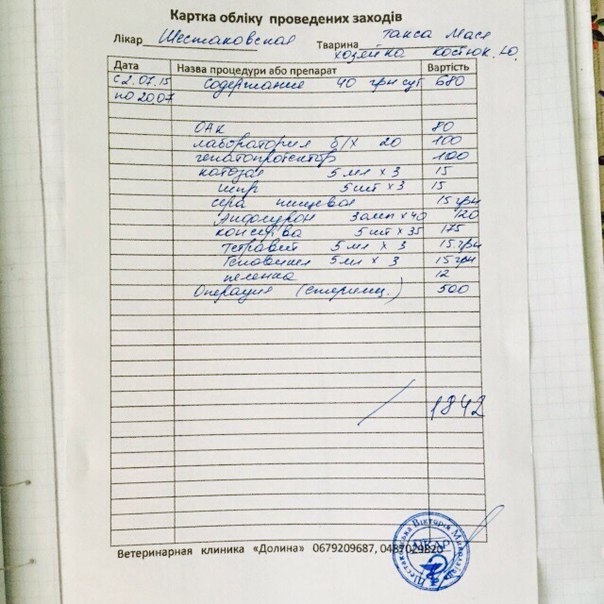 Картка обліку проведених заходів
Лікар Шестаковская Тварина такса Мася
хозяйка Костюк. Ю.
Дата Назва процедури або препарат Вартість
с 2.07.15 Содержание 40 грн сут 680
по 20 07
ОАК 80
лаборатория б/х 20 100
гепатопротектор 100
катозал 5 мл х 3 15
шпр 5 шт х 3 15
сера пищевая 15 грн
3 амп х 40 120
консерва 5 шт х 35 175
тетравит 5 мл х 3 15 грн
5 мл х 3 15 грн
пеленка 12
Операция 500
1842
Ветеринарная клиника «Долина» 0679209687, 0487029820